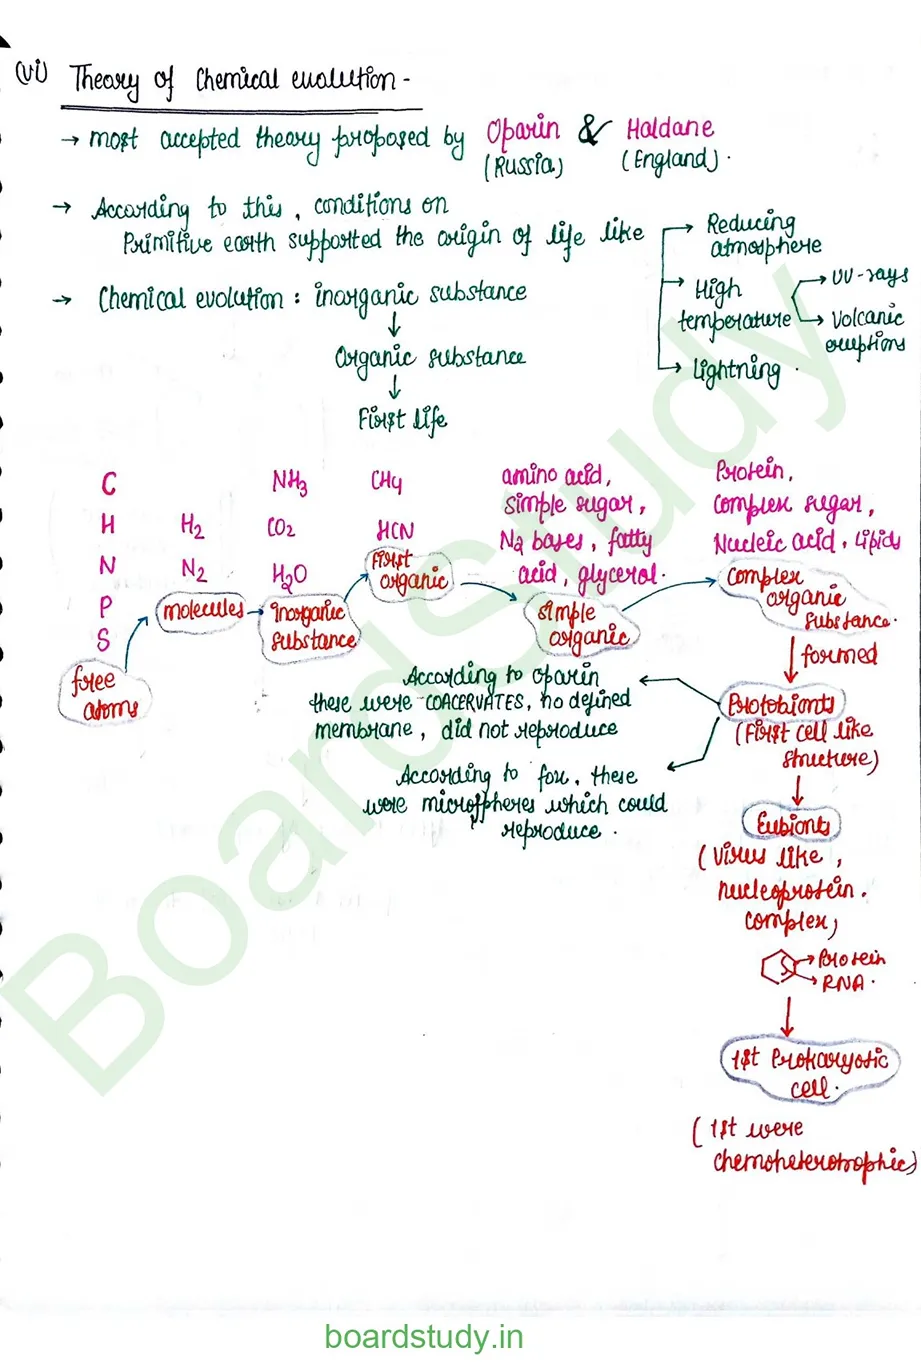 (vi) Theory of Chemical evolution -
→ most accepted theory proposed by Oparin & Haldane
(Russia) (England).
→ According to this, conditions on
Primitive earth supported the origin of life like
→ Reducing
atmosphere
→ High
temperature
→ UV-rays
→ Volcanic
eruptions
→ Lightning.
→ Chemical evolution : inorganic substance
↓
Organic substance
↓
First life
C
H
N
P
S
free
atoms
H2
N2
molecules
NH3
CO2
H2O
inorganic
substance
CH4
HCN
first
organic
amino acid,
simple sugar,
N2 bases, fatty
acid, glycerol.
simple
organic
Protein,
complex sugar,
Nucleic acid, Lipids
complex
organic
substance.
↓ formed
Protobionts
(First cell like
structure)
According to Oparin
there were COACERVATES, no defined
membrane, did not reproduce
According to fox, there
were microspheres which could
reproduce.
↓
Eubionts
(Virus like,
nucleoprotein.
complex)
→ Protein
→ RNA.
↓
1st Prokaryotic
cell.
(1st were
chemoheterotrophic)
BoardStudy
boardstudy.in